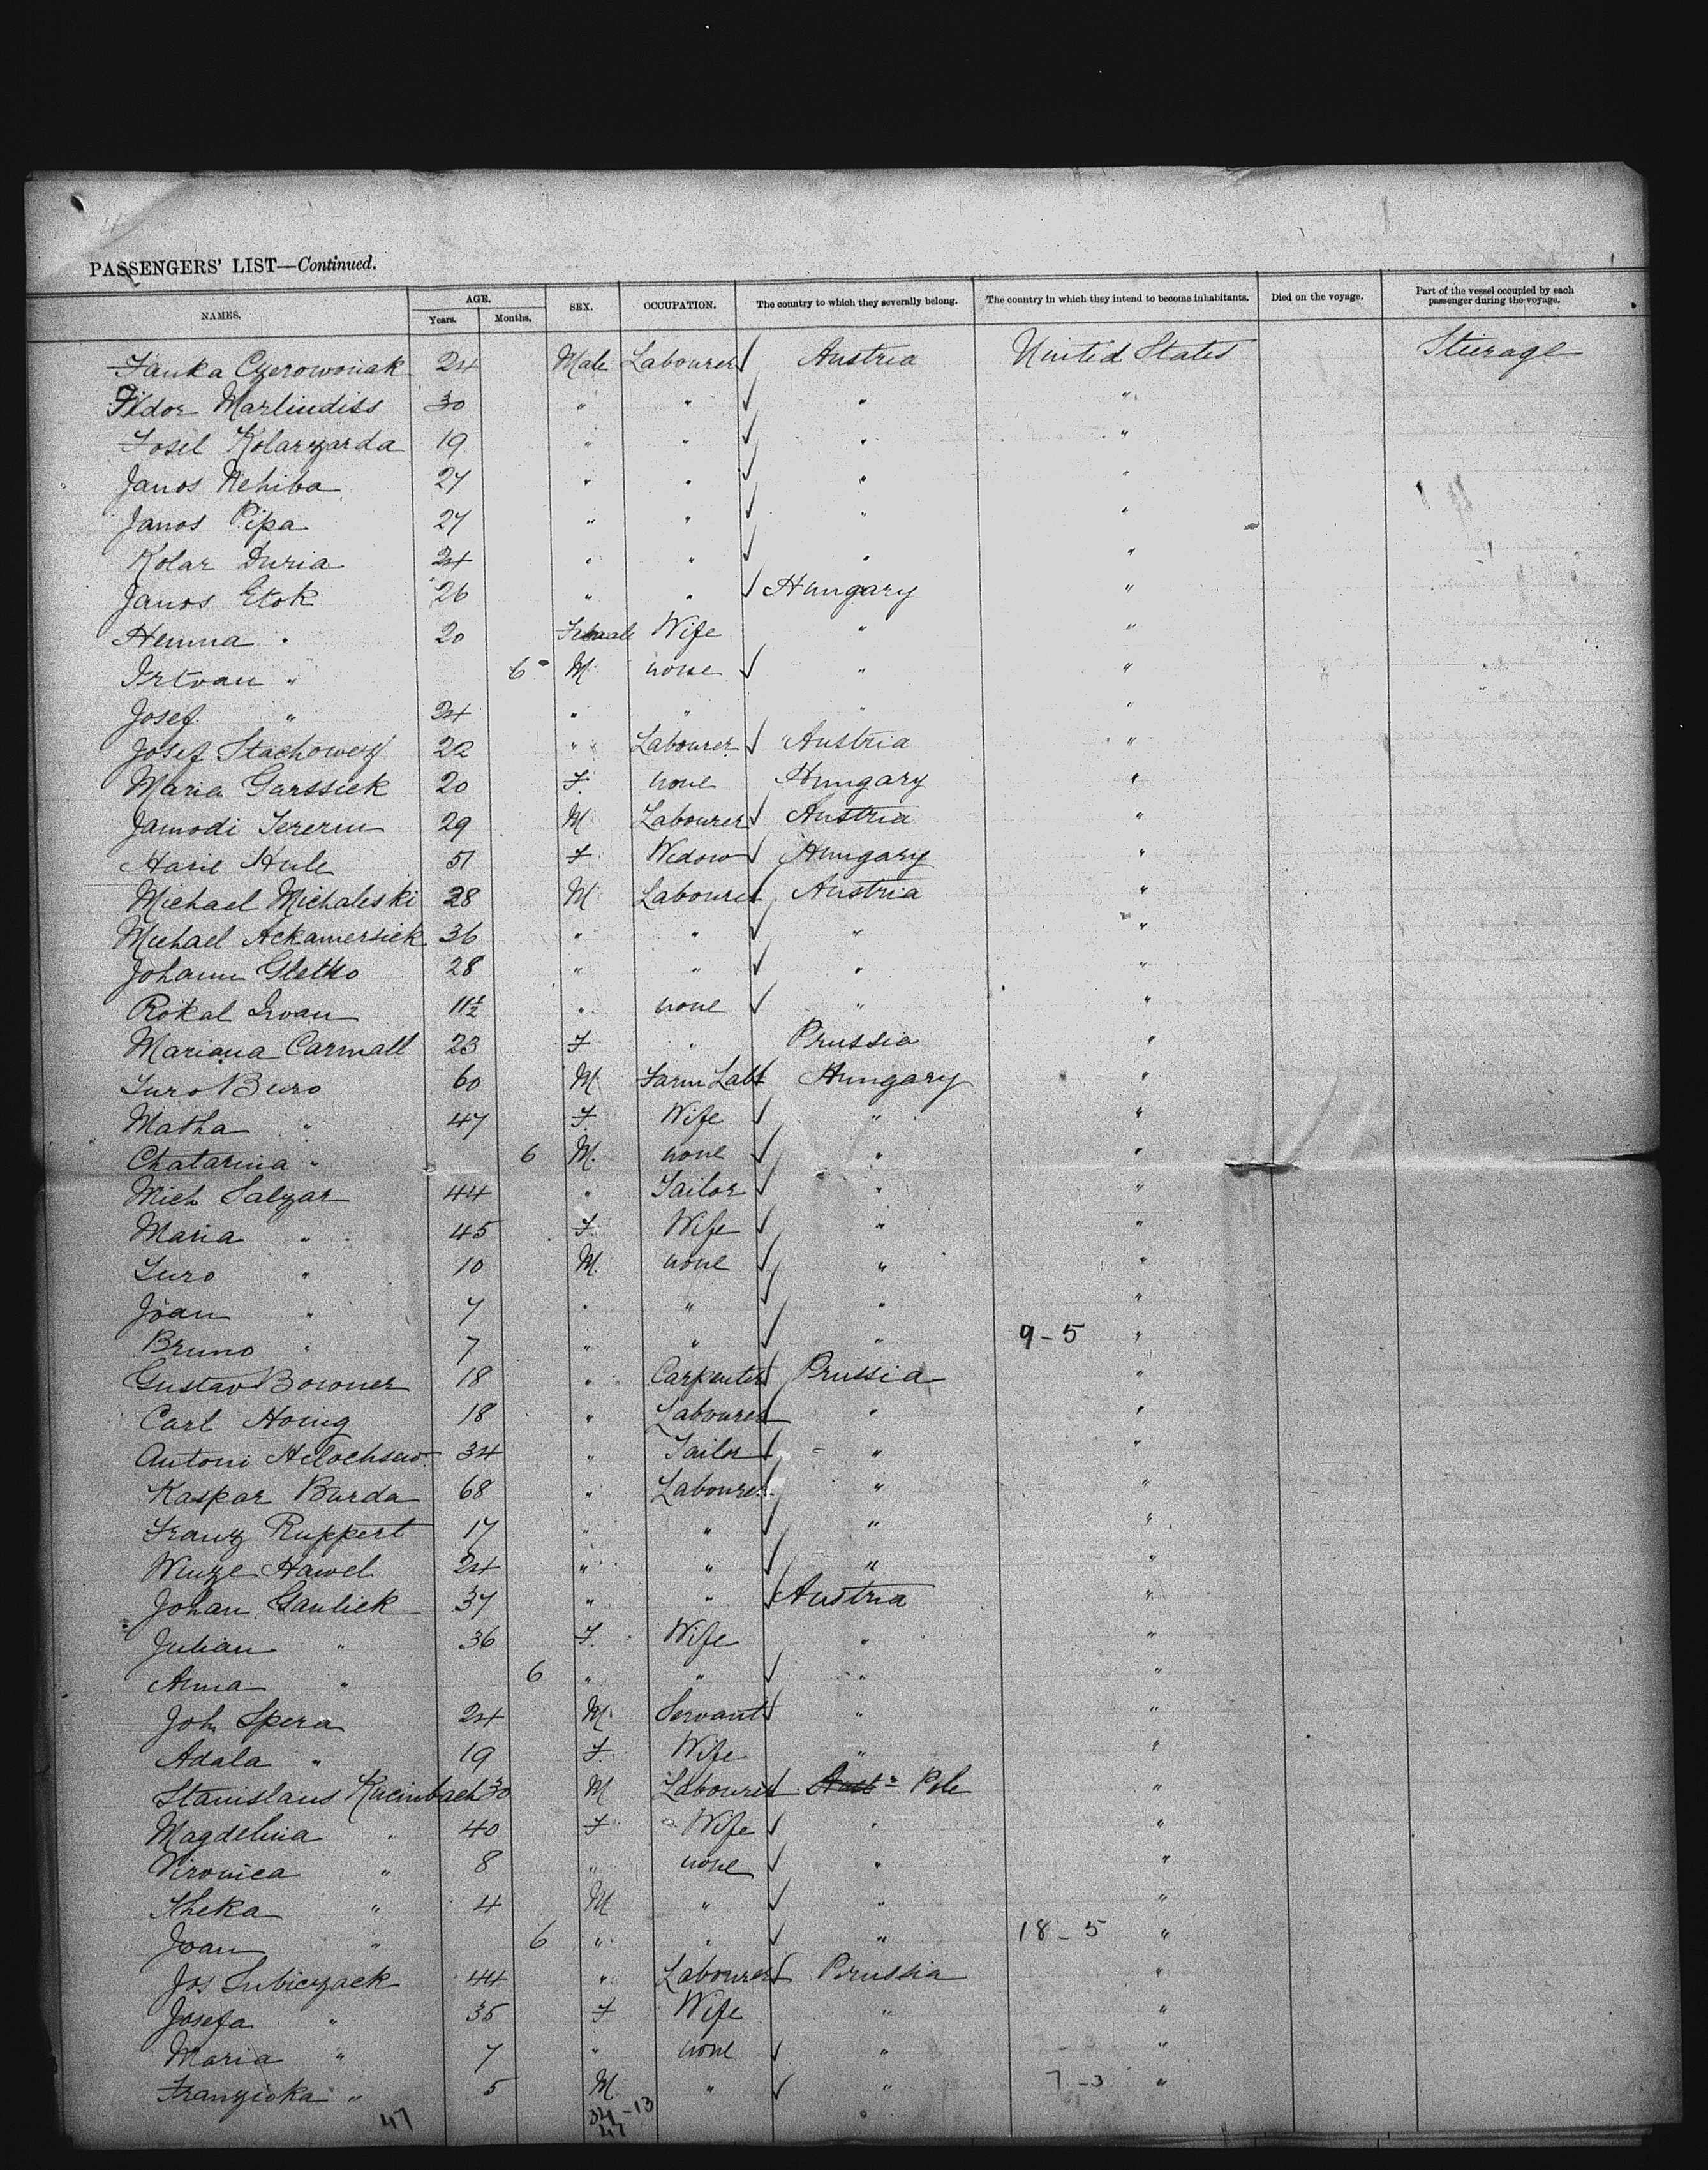 PASSENGERS' LIST—Continued.
NAMES. AGE. SEX. OCCUPATION. The country to which they severally belong. The country in which they intend to become inhabitants. Died on the voyage. Part of the vessel occupied by each passenger during the voyage.
Years. Months.
Janka Czerowoniak 24 Male Labourer Austria United States Steerage
Fidor Marlindiss 30 " " " "
Josel Kolarzarda 19 " " " "
Janos Nehiba 27 " " " "
Janos Pipa 27 " " " "
Kolar Duria 24 " " " "
Janos Etok 26 " " Hungary "
Hemma " 20 Female Wife " "
Irtvan " 6 M. none " "
Josef " 24 " " " "
Josef Stachowezf 22 " Labourer Austria "
Maria Garssiek 20 F. none Hungary "
Jamodi Tererm 29 M Labourer Austria "
Marie Hule 51 F. Widow Hungary "
Michael Michaleski 28 M. Labourer Austria "
Michael Ackamersiek 36 " " " "
Johann Gletko 28 " " " "
Rokal Ivan 11½ " none " "
Mariana Carmall 23 F " Prussia "
Juro Buro 60 M Farm Labr Hungary "
Matha " 47 F. Wife " "
Chatarina " 6 M. none " "
Mich Salzar 44 " Tailor " "
Maria " 45 F. Wife " "
Juro " 10 M. none " "
Joan " 7 " " " "
Bruno " 7 " " " 9-5 "
Gustav Bowner 18 " Carpenter Prussia "
Carl Hoing 18 " Labourer " "
Antoni 34 " Tailor " "
Kaspar Burda 68 " Labourer " "
Franz Ruppert 17 " " " "
Wenze Hawel 24 " " " "
Johan Gauliek 37 " " Austria "
Julian " 36 F. Wife " "
Anna " 6 " " " "
Joh Spera 24 M. Servant " "
Adala " 19 F. Wife " "
Stanislaus Kucinbach 30 M Labourer Aust Pole "
Magdelina " 40 F Wife " "
Vironica " 8 " none " "
Theka " 4 M " " "
Joan " 6 " " " 18-5 "
Jos Lubiezack 44 " Labourer Prussia "
Josefa " 35 F Wife " "
Maria " 7 " none " "
Franziska " 5 M. " " 7-3 "
47 34-13
47